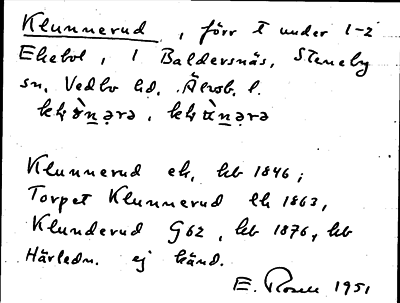 Klunnerud, förr t under 1-2
Ekebol, 1 Baldersnäs, Steneby
sn, Vedbo hd. Älvsb. l.
Klunnerud ek, kb 1846;
Torpet Klunnerud lk 1863,
Klunderud G62, kb 1876, kb
Härledn. ej känd.
E. Rosell 1951